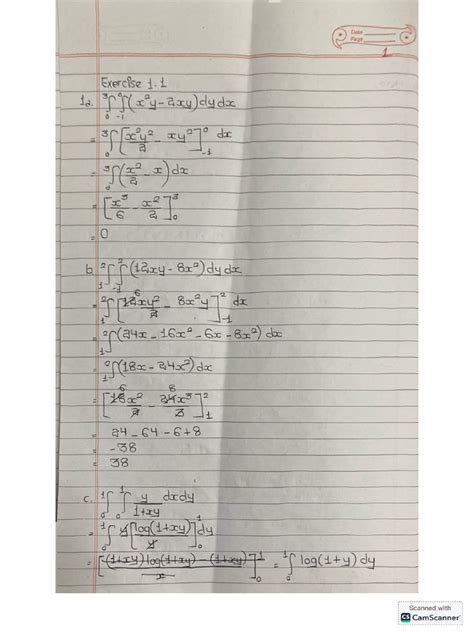 Date
Page
1
Exercise 1.1
1a. ³₀∫ ⁰₋₁∫ (x²y - 2xy) dy dx
= ³₀∫ [x²y²/2 - xy²]⁰₋₁ dx
= ³₀∫ (x²/2 - x) dx
= [x³/6 - x²/2]³₀
= 0
b. ²₁∫ ²₋₁∫ (12xy - 8x²) dy dx
= ²₁∫ [12xy²/2 - 8x²y]²₋₁ dx
= ²₁∫ (24x - 16x² - 6x - 8x²) dx
= ²₁∫ (18x - 24x²) dx
= [18x²/2 - 24x³/3]²₁
= 24 - 64 - 6 + 8
= -38
= 38
c. ¹₀∫ ¹₀∫ y/1+xy dx dy
= ¹₀∫ y [log(1+xy)/y]¹₀ dy
= [(1+xy) log(1+xy) - (1+xy)/x]¹₀ = ¹₀∫ log(1+y) dy
Scanned with
CS CamScanner